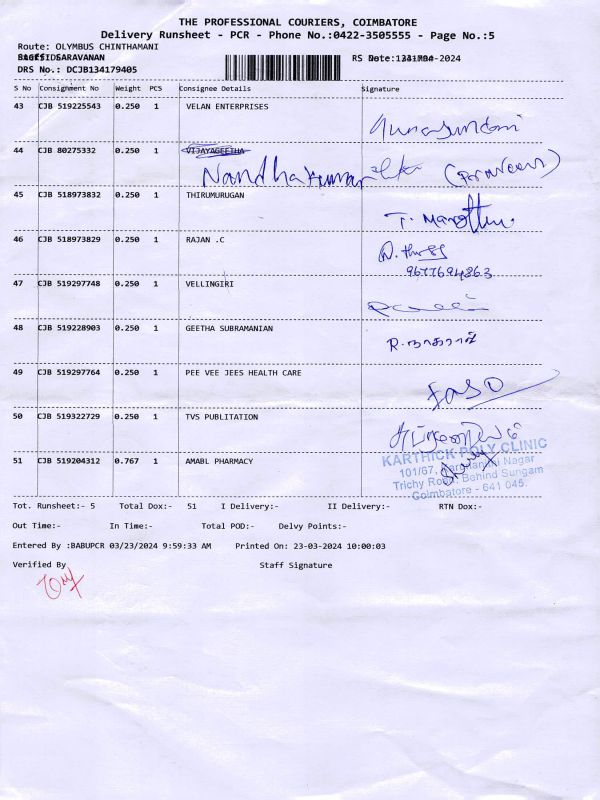 THE PROFESSIONAL COURIERS, COIMBATORE
Delivery Runsheet - PCR - Phone No.:0422-3505555 - Page No.:5
Route: OLYMBUS CHINTHAMANI
SARAVANAN
DRS No.: DCJB134179405
S No Consignment No Weight PCS Consignee Details Signature
43 CJB 519225543 0.250 1 VELAN ENTERPRISES
44 CJB 80275332 0.250 1 VIJAYAGEETHA
Nandhakumar
45 CJB 518973832 0.250 1 THIRUMURUGAN
46 CJB 518973829 0.250 1 RAJAN .C
9677694863
47 CJB 519297748 0.250 1 VELLINGIRI
48 CJB 519228903 0.250 1 GEETHA SUBRAMANIAN
49 CJB 519297764 0.250 1 PEE VEE JEES HEALTH CARE
50 CJB 519322729 0.250 1 TVS PUBLITATION
51 CJB 519204312 0.767 1 AMABL PHARMACY
KARTHICK POLY CLINIC
101/67, Nagar
Trichy Road, Behind Sungam
Coimbatore - 641 045.
Tot. Runsheet:- 5 Total Dox:- 51 I Delivery:- II Delivery:- RTN Dox:-
Out Time:- In Time:- Total POD:- Delvy Points:-
Entered By :BABUPCR 03/23/2024 9:59:33 AM Printed On: 23-03-2024 10:00:03
Verified By Staff Signature